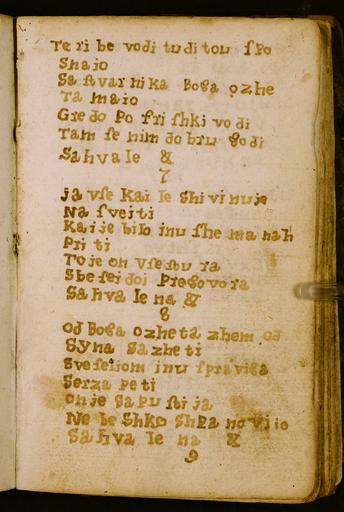 Te ri be vodi tu di tou ſpo
Snaio
Sa ſtvar ni ka Boga ozhe
Ta maio
Gre do Po fri ſhki vo di
Tam ſe nim do bru godi
Sahvale &
7
ja vſe Kai le Shivi nuje
Na ſveiti
Kaije bilo inu ſhe ma nah
Pri ti
To je on vſe ſtu ra
Sbe ſei doi Pregovora
Sahva le na &
8
od Boga ozheta zhem od
Syna Sazhe ti
Sveſeliom inu ſpraviga
Serza Pe ti
onje Sapuſti ja
Ne be Shko Shga no vi io
Sahva le na &
9